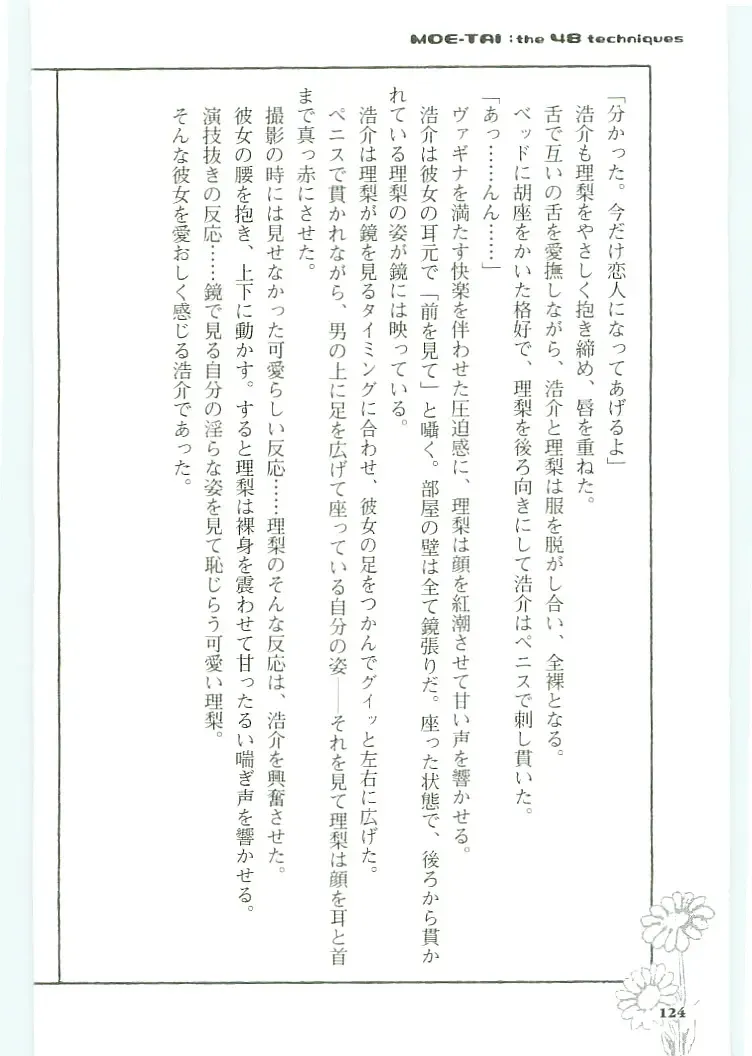 MOE-TAI : the 48 techniques
「分かった。今だけ恋人になってあげるよ」
浩介も理梨をやさしく抱き締め、唇を重ねた。
舌で互いの舌を愛撫しながら、浩介と理梨は服を脱がし合い、全裸となる。
ベッドに胡座をかいた格好で、理梨を後ろ向きにして浩介はペニスで刺し貫いた。
「あっ……んん……」
ヴァギナを満たす快楽を伴わせた圧迫感に、理梨は顔を紅潮させて甘い声を響かせる。
浩介は彼女の耳元で「前を見て」と囁く。部屋の壁は全て鏡張りだ。座った状態で、後ろから貫か
れている理梨の姿が鏡には映っている。
浩介は理梨が鏡を見るタイミングに合わせ、彼女の足をつかんでグイッと左右に広げた。
ペニスで貫かれながら、男の上に足を広げて座っている自分の姿――それを見て理梨は顔を耳と首
まで真っ赤にさせた。
撮影の時には見せなかった可愛らしい反応……理梨のそんな反応は、浩介を興奮させた。
彼女の腰を抱き、上下に動かす。すると理梨は裸身を震わせて甘ったるい喘ぎ声を響かせる。
演技抜きの反応……鏡で見る自分の淫らな姿を見て恥じらう可愛い理梨。
そんな彼女を愛おしく感じる浩介であった。
124